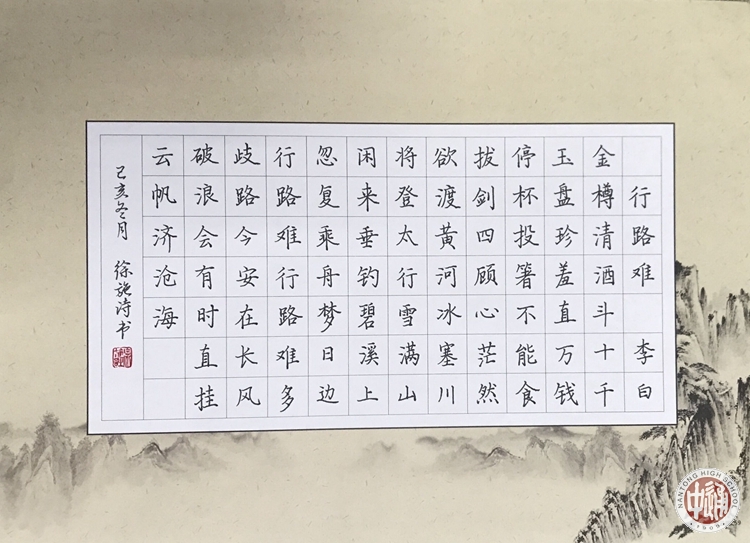 行路难 李白
金樽清酒斗十千
玉盘珍羞直万钱
停杯投箸不能食
拔剑四顾心茫然
欲渡黄河冰塞川
将登太行雪满山
闲来垂钓碧溪上
忽复乘舟梦日边
行路难行路难多
歧路今安在长风
破浪会有时直挂
云帆济沧海
己亥冬月 徐施诗书
NANTONG HIGH SCHOOL
1909